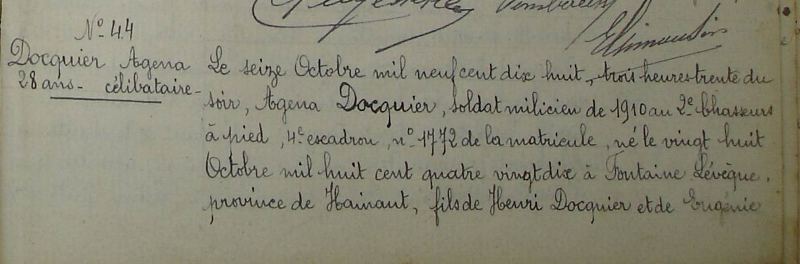 Nº 44
Docquier Agena
28 ans - célibataire -
Le seize Octobre mil neuf cent dix huit, trois heures trente du
soir, Agena Docquier, soldat milicien de 1910 au 2e Chasseurs
à pied, 4e escadron, nº 1772 de la matricule, né le vingt huit
Octobre mil huit cent quatre vingt dix à Fontaine Lévêque,
province de Hainaut, fils de Henri Docquier et de Eugénie